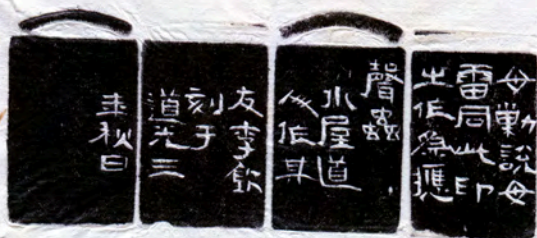 毋勦說毋
雷同此印
之作爲應
聲蟲
水屋道
人作耳
友李飲
刻于
道光三
年秋日